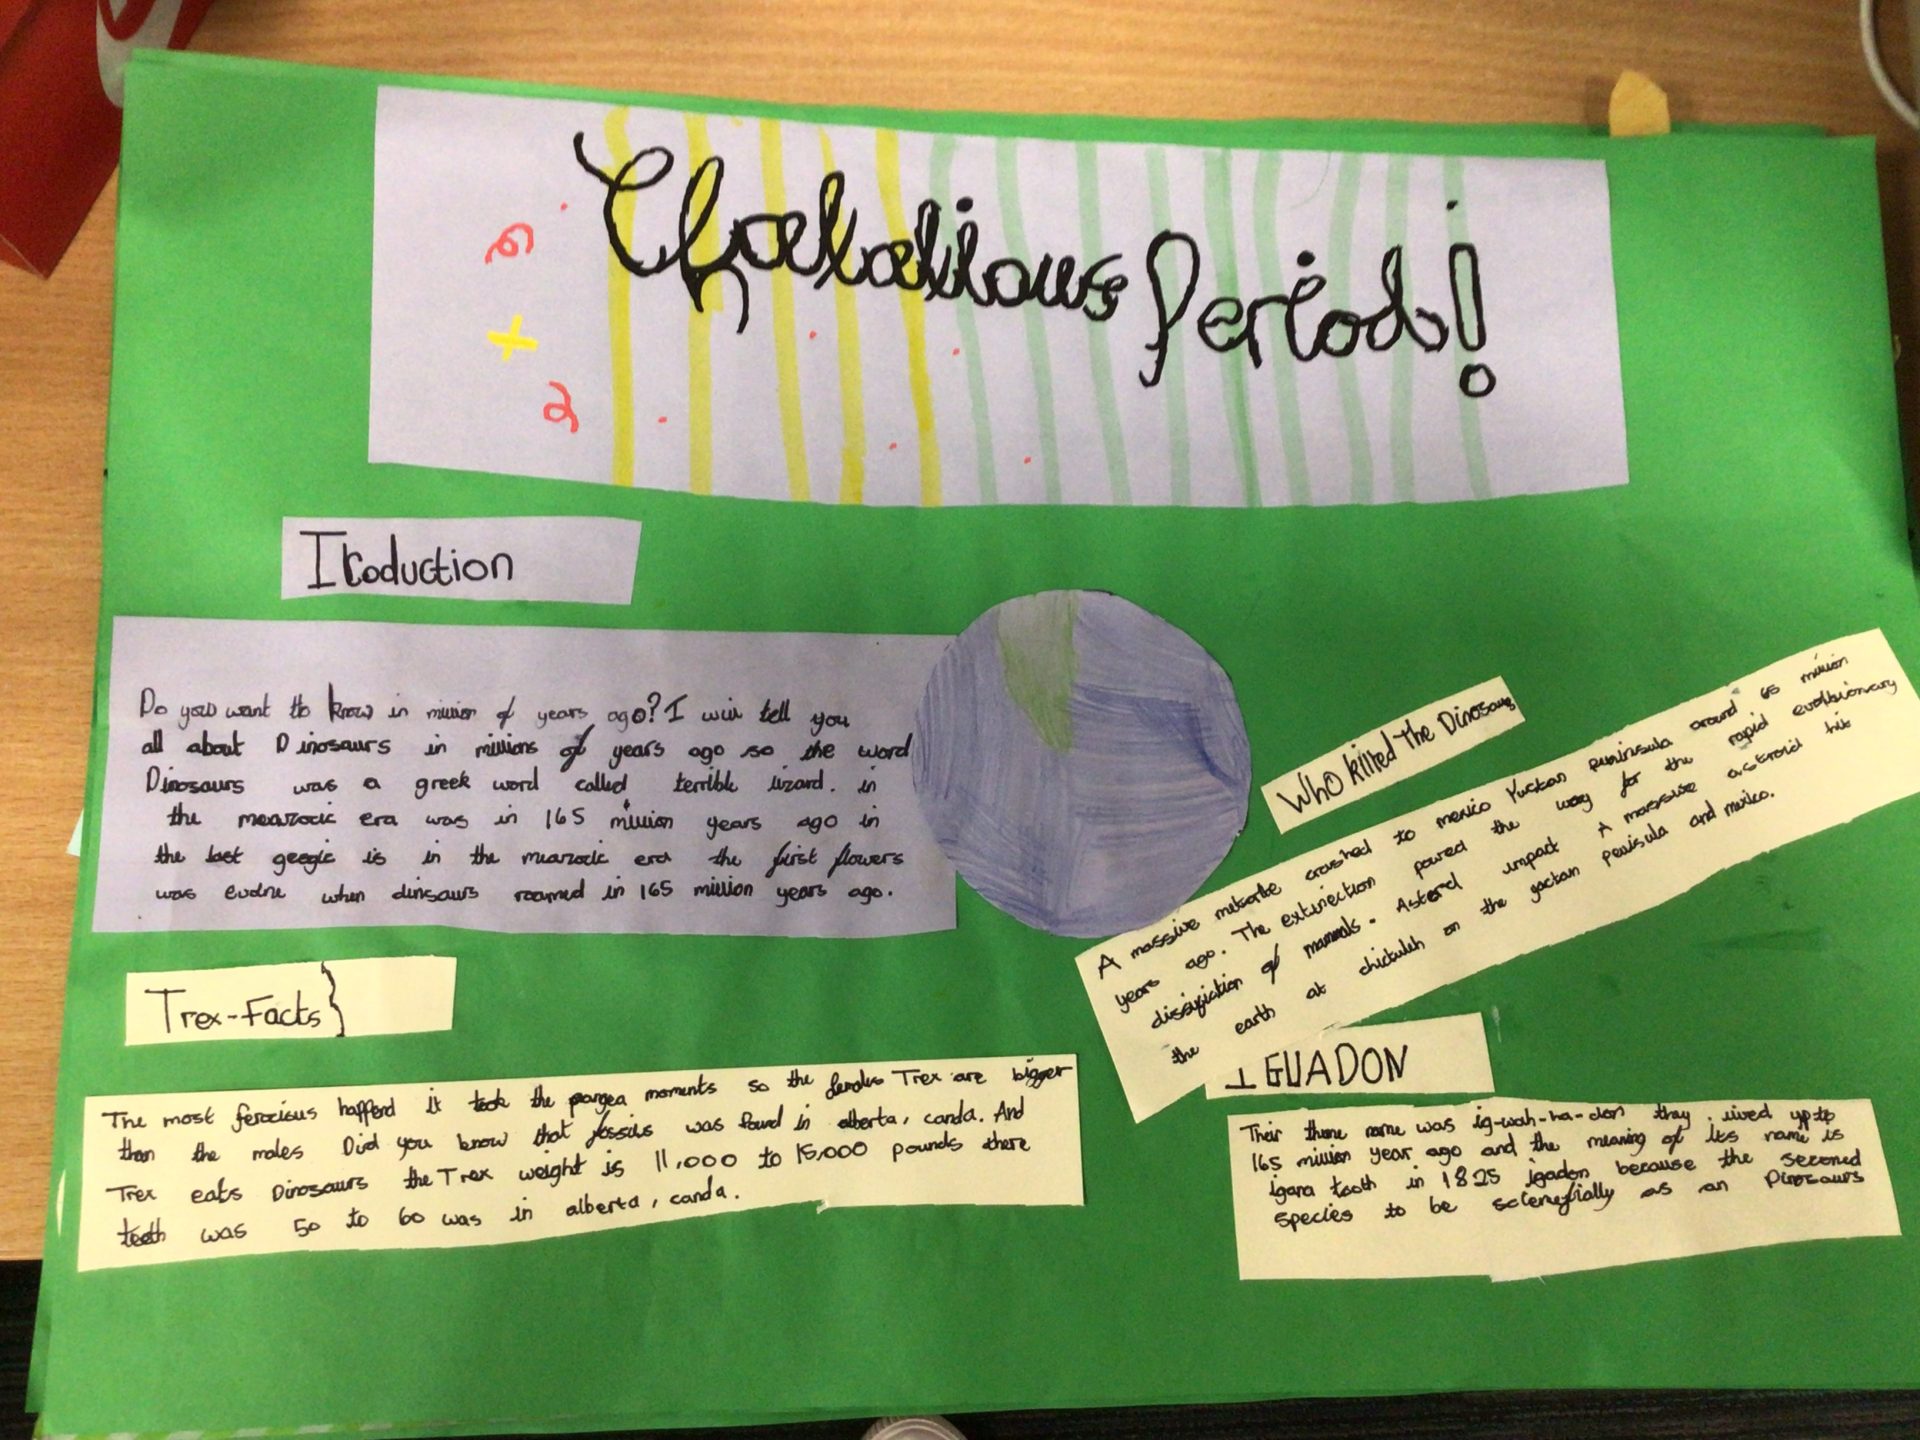 Period!
Itroduction
Do you want to know in million of years ago? I will tell you
all about Dinosaurs in millions of years ago so the word
Dinosaurs was a greek word called terrible lizard. in
the mearzoic era was in 165 million years ago in
the last geogic is in the mearzoic era the first flowers
was evolne when dinsaurs roamed in 165 million years ago.
Trex-Facts}
The most ferocious hafferd it took the pangea moments so the females Trex are bigger
than the males Did you know that fossils was found in alberta, canda. And
Trex eats Dinosaurs the Trex weight is 11,000 to 15,000 pounds there
teeth was 50 to 60 was in alberta, canda.
Who killed The Dinosaurs
A massive metorite crashed to mexico Yuctan peninsula around 65 million
years ago. The extinction paved the way for the rapid evolutionary
of mammals. Asteroid impact A massive astroid hit
the earth at on the yactan penisula and mexico.
IGUADON
Their name was ig-wah-na-don they lived up to
165 million year ago and the meaning of its name is
igana tooth in 1825 igadon because the seconed
species to be as an Dinosaurs